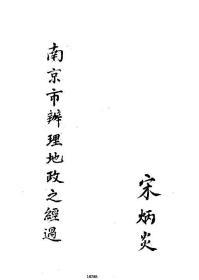 南京市辦理地政之經過
宋炳炎